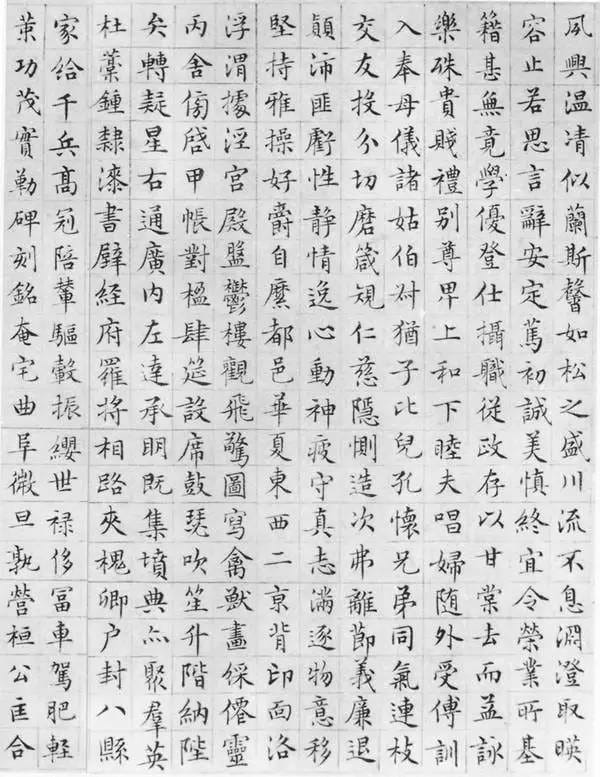 夙興温凊似蘭斯馨如松之盛川流不息淵澄取暎
容止若思言辭安定篤初誠美慎終宜令榮業所基
籍甚無竟學優登仕攝職從政存以甘棠去而益詠
樂殊貴賤禮別尊卑上和下睦夫唱婦随外受傅訓
入奉母儀諸姑伯叔猶子比兒孔懷兄弟同氣連枝
交友投分切磨箴規仁慈隱惻造次弗離節義廉退
顛沛匪虧性靜情逸心動神疲守真志滿逐物意移
堅持雅操好爵自縻都邑華夏東西二京背邙面洛
浮渭據涇宮殿盤鬱樓觀飛驚圖寫禽獸畫綵僊靈
丙舍傍啓甲帳對楹肆筵設席鼓瑟吹笙升階納陛
弁轉疑星右通廣内左達承明既集墳典亦聚羣英
杜藁鍾隸漆書壁経府羅將相路夾槐卿户封八縣
家給千兵高冠陪輦驅轂振纓世禄侈冨車駕肥軽
茦功茂實勒碑刻銘奄宅曲阜微旦孰營桓公匡合